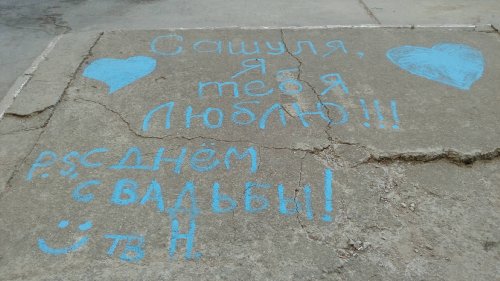 Сашуля,
я
тебя
люблю!!!
P.S. С ДНЁМ
СВАДЬБЫ!
:) ТВ Н.